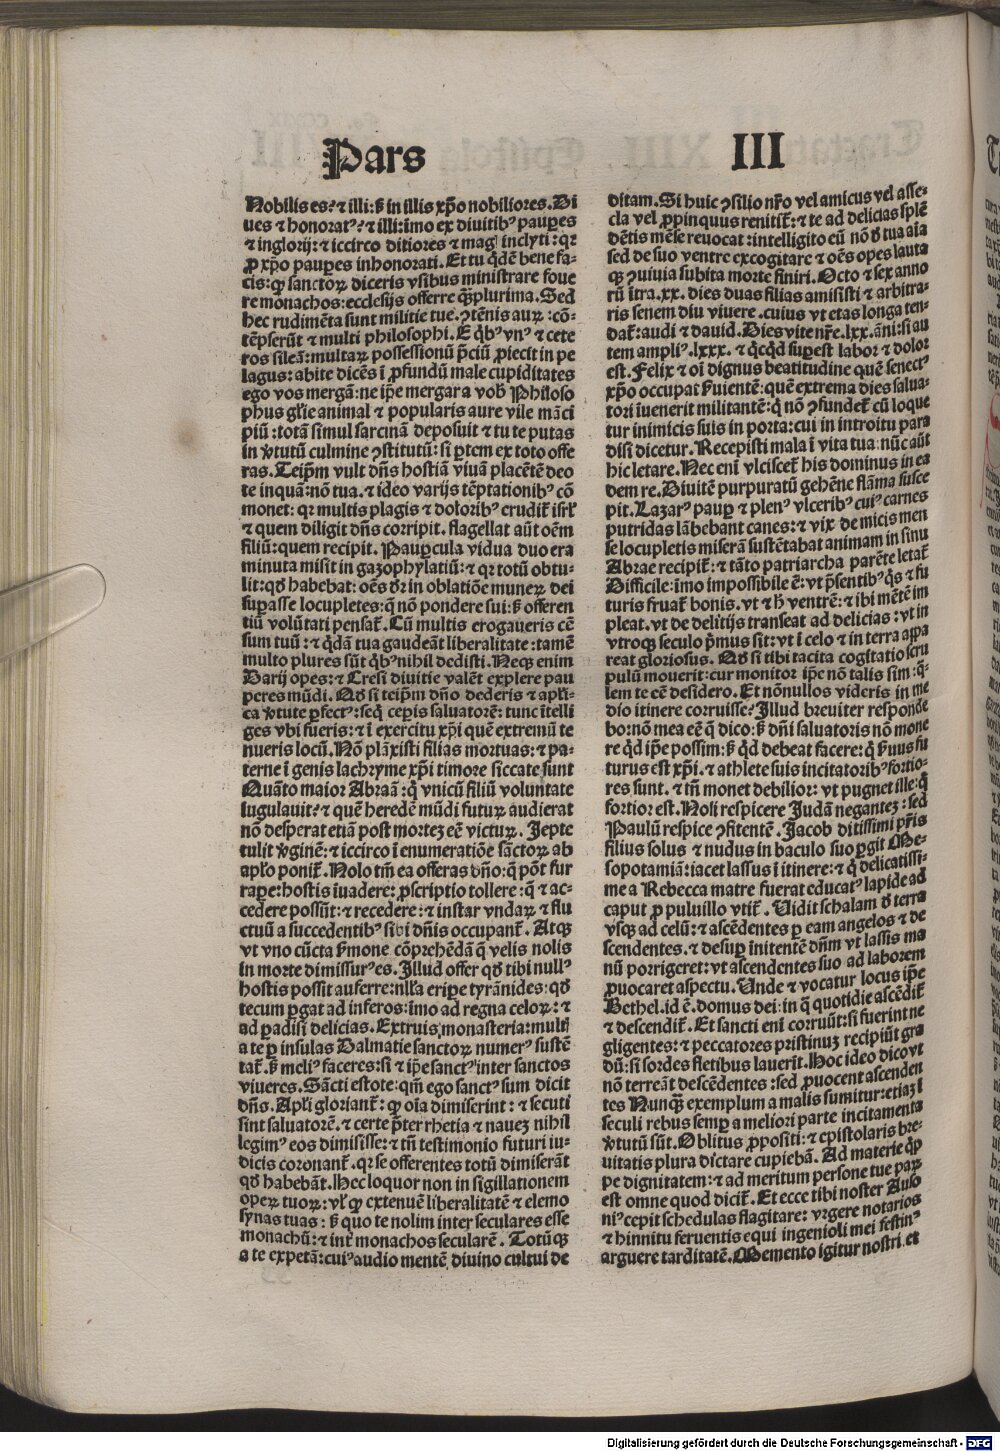 Pars
III
Nobilis es? ⁊ illi: sꝫ in illis xp̄o nobiliores. Di
ues ⁊ honoratꝰ? ⁊ illi: īmo ex diuitibꝰ pauꝑes
⁊ inglorij: ⁊ iccirco ditiores ⁊ magꝭ inclyti: qꝛ
ꝓ xp̄o pauꝑes inhonorati. Et tu q̇dē bene fa-
cis: qꝫ sanctoꝝ diceris vsibus ministrare foue
re monachos: ecclesijs offerre q̄ꝫplurima. Sed
hec rudimēta sunt militie tue. ꝯtēnis auꝝ: cō-
tēpserūt ⁊ multi philosophi. E q̇bꝰ vnꝰ ⁊ cete
ros sileā: multaꝝ possessionū p̄ciū ꝓiecit in pe
lagus: abite dicēs ī ꝓfundū male cupiditates
ego vos mergā: ne ip̄e mergar a vobꝭ Philoso
phus gl̄ie animal ⁊ popularis aure vile māci
piū: totā simul sarcinā deposuit ⁊ tu te putas
in v̄tutū culmine ꝯstitutū: si ꝑtem ex toto offe
ras. Teip̄m vult dn̄s hostiā viuā placētē deo
te inquā: nō tua. ⁊ ideo varijs tēptationibꝰ cō
monet: qꝛ multis plagis ⁊ doloribꝰ erudit᷑ isrl̓
⁊ quem diligit dn̄s corripit. flagellat aūt oēm
filiū: quem recipit. Pauꝑcula vidua duo era
minuta misit in gazophylatiū: ⁊ qꝛ totū obtu-
lit: qd̓ habebat: oēs dr̄ in oblatiōe muneꝝ dei
suꝑasse locupletes: q̄ nō pondere sui: sꝫ offeren
tiū volūtati pensat᷑. Cū multis erogaueris cē
sum tuū: ⁊ q̇dā tua gaudeāt liberalitate: tamē
multo plures sūt q̇bꝰ nihil dedisti. Neqꝫ enim
Darij opes: ⁊ Cresi diuitie valēt explere pau
peres mūdi. Qd̓ si teip̄m dn̄o dederis ⁊ apl̓i-
ca v̄tute ꝑfectꝰ: seq̇ ceperis saluatorē: tunc ītelli
ges vbi fueris: ⁊ ī exercitu xp̄i quē extremū te
nueris locū. Nō plāxisti filias mortuas: ⁊ pa-
terne ī genis lachryme xp̄i timore siccate sunt
Quāto maior Abraā: q̇ vnicū filiū voluntate
iugulauit? ⁊ quē heredē mūdi futuꝝ audierat
nō desperat etiā post mortez eē victuꝝ. Jepte
tulit v̄ginē: ⁊ iccirco ī enumeratiōe sāctoꝝ ab
apl̓o ponit᷑. Nolo tm̄ ea offeras dn̄o: q̄ pōt fur
raꝑe: hostis īuadere: ꝓscriptio tollere: q̄ ⁊ ac-
cedere possūt: ⁊ recedere: ⁊ instar vndaꝝ ⁊ flu
ctuū a succedentibꝰ sibi dn̄is occupant᷑. Atqꝫ
vt vno cūcta s̄mone cōprehēdā q̄ velis nolis
in morte dimissurꝰ es. Illud offer qd̓ tibi nullꝰ
hostis possit auferre: nlla eripe tyrānides: qd̓
tecum ꝑgat ad inferos: īmo ad regna celoꝝ: ⁊
ad ꝑadisi delicias. Extruis monasteria: multi
a te ꝑ insulas Dalmatie sanctoꝝ numerꝰ sustē
tat᷑. sꝫ meliꝰ faceres: si ⁊ ip̄e sanctꝰ inter sanctos
viueres. Sācti estote: qm̄ ego sanctꝰ sum dicit
dn̄s. Apl̓i gloriant᷑: qꝫ oīa dimiserint: ⁊ secuti
sint saluatorē. ⁊ certe p̄ter rhetia ⁊ nauez nihil
legimꝰ eos dimisisse: ⁊ tn̄ testimonio futuri iu-
dicis coronant᷑. qꝛ se offerentes totū dimiserāt
qd̓ habebāt. Hec loquor non in sigillationem
opeꝝ tuoꝝ: vl̓ qꝫ extenuē liberalitatē ⁊ elemo
synas tuas: sꝫ quo te nolim inter seculares esse
monachū: ⁊ int̓ monachos secularē. Totū qꝫ
a te expetā: cuiꝰ audio mentē diuino cultui de
ditam. Si huic ꝯsilio nr̄o vel amicus vel asse-
cla vel ꝓpinquus renitit᷑: ⁊ te ad delicias splē
dētis mēse reuocat: intelligito eū nō d̓ tua aīa
sed de suo ventre excogitare ⁊ oēs opes lauta
qꝫ ꝯuiuia subita morte finiri. Octo ⁊ sex anno
rū ītra .xx. dies duas filias amisisti ⁊ arbitra-
ris senem diu viuere. cuius vt etas longa ten-
dat᷑: audi ⁊ dauid. Dies vite nr̄e .lxx. āni: si au
tem ampliꝰ .lxxx. ⁊ q̇cq̇d suꝑest labor ⁊ dolor
est. Felix ⁊ oī dignus beatitudine quē senectꝰ
xp̄o occupat s̄uientē: quē extrema dies salua-
tori īuenerit militantē: q̇ nō ꝯfundet᷑ cū loque
tur inimicis suis in porta: cui in introitu para
disi dicetur. Recepisti mala ī vita tua: nūc aūt
hic letare. Nec enī vlciscet᷑ his dominus in ea
dem re. Diuitē purpuratū gehēne flāma susce
pit. Lazarꝰ pauꝑ ⁊ plenꝰ vlceribꝰ cuiꝰ carnes
putridas lābebant canes: ⁊ vix de micis men
se locupletis miserā sustētabat animam in sinu
Abrae recipit᷑: ⁊ tāto patriarcha parēte letat᷑
Difficile: īmo impossibile ē: vt p̄sentibꝰ q̇s ⁊ fu
turis fruat᷑ bonis. vt ⁊ hꝭ ventrē: ⁊ ibi mētē im
pleat. vt de delitijs transeat ad delicias: vt in
vtroqꝫ seculo p̄mus sit: vt ī celo ⁊ in terra appa
reat gloriosus. Qd̓ si tibi tacita cogitatio scru
pulū mouerit: cur monitor ip̄e nō talis sim: q̄-
lem te eē desidero. Et nōnullos videris in me
dio itinere corruisse? Illud breuiter responde
bo: nō mea eē q̄ dico: sꝫ dn̄i saluatoris nō mone
re q̇d ip̄e possim: sꝫ q̇d debeat facere: q̇ s̄uus fu
turus est xp̄i. ⁊ athlete suis incitatoribꝰ fortio-
res sunt. ⁊ tn̄ monet debilior: vt pugnet ille: q̇
fortior est. Noli respicere Judā negantez: sed
Paulū respice ꝯfitentē. Jacob ditissimi pr̄is
filius solus ⁊ nudus in baculo suo ꝑgit Me-
sopotamiā: iacet lassus ī itinere: ⁊ q̇ delicatissi-
me a Rebecca matre fuerat educatꝰ lapide ad
caput ꝓ puluillo vtit᷑. Uidit schalam d̓ terra
vsqꝫ ad celū: ⁊ ascēdentes ꝑ eam angelos ⁊ de
scendentes. ⁊ desuꝑ īnitentē dn̄m vt lassis ma
nū porrigeret: vt ascendentes suo ad laborem
ꝓuocaret aspectu. Unde ⁊ vocatur locus ip̄e
Bethel. id ē. domus dei: in q̄ quotidie ascēdit᷑
⁊ descendit᷑. Et sancti enī corruūt: si fuerint ne
gligentes: ⁊ peccatores pristinuꝫ recipiūt gra
dū: si sordes fletibus lauerīt. Hoc ideo dico vt
nō terreāt descēdentes: sed ꝓuocent ascenden
tes Nunqꝫ̄ exemplum a malis sumitur: etiaꝫ ī
seculi rebus semꝑ a meliori parte incitamenta
v̄tutū sūt. Oblitus ꝓpositi: ⁊ epistolaris bre-
uitatis plura dictare cupiebā. Ad materie q̇ꝑ
pe dignitatem: ⁊ ad meritum persone tue paꝝ
est omne quod dicit᷑. Et ecce tibi noster Auso
niꝰ cepit schedulas flagitare: vrgere notarios
⁊ hinnitu feruentis equi ingenioli mei festinꝰ
arguere tarditatē. Memento igitur nostri et
Digitalisierung gefördert durch die Deutsche Forschungsgemeinschaft - DFG